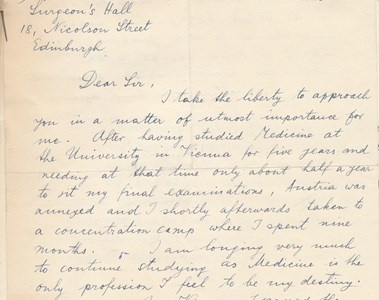 Surgeon's Hall
18, Nicolson Street
Edinburgh
Dear Sir,
I take the liberty to approach
you in a matter of utmost importance for
me. After having studied Medicine at
the University in Vienna for five years and
needing at that time only about half a year
to sit my final examinations, Austria was
annexed and I shortly afterwards taken to
a concentration camp where I spent nine
months. I am longing very much
to continue studying as Medicine is the
only profession I feel to be my destiny.